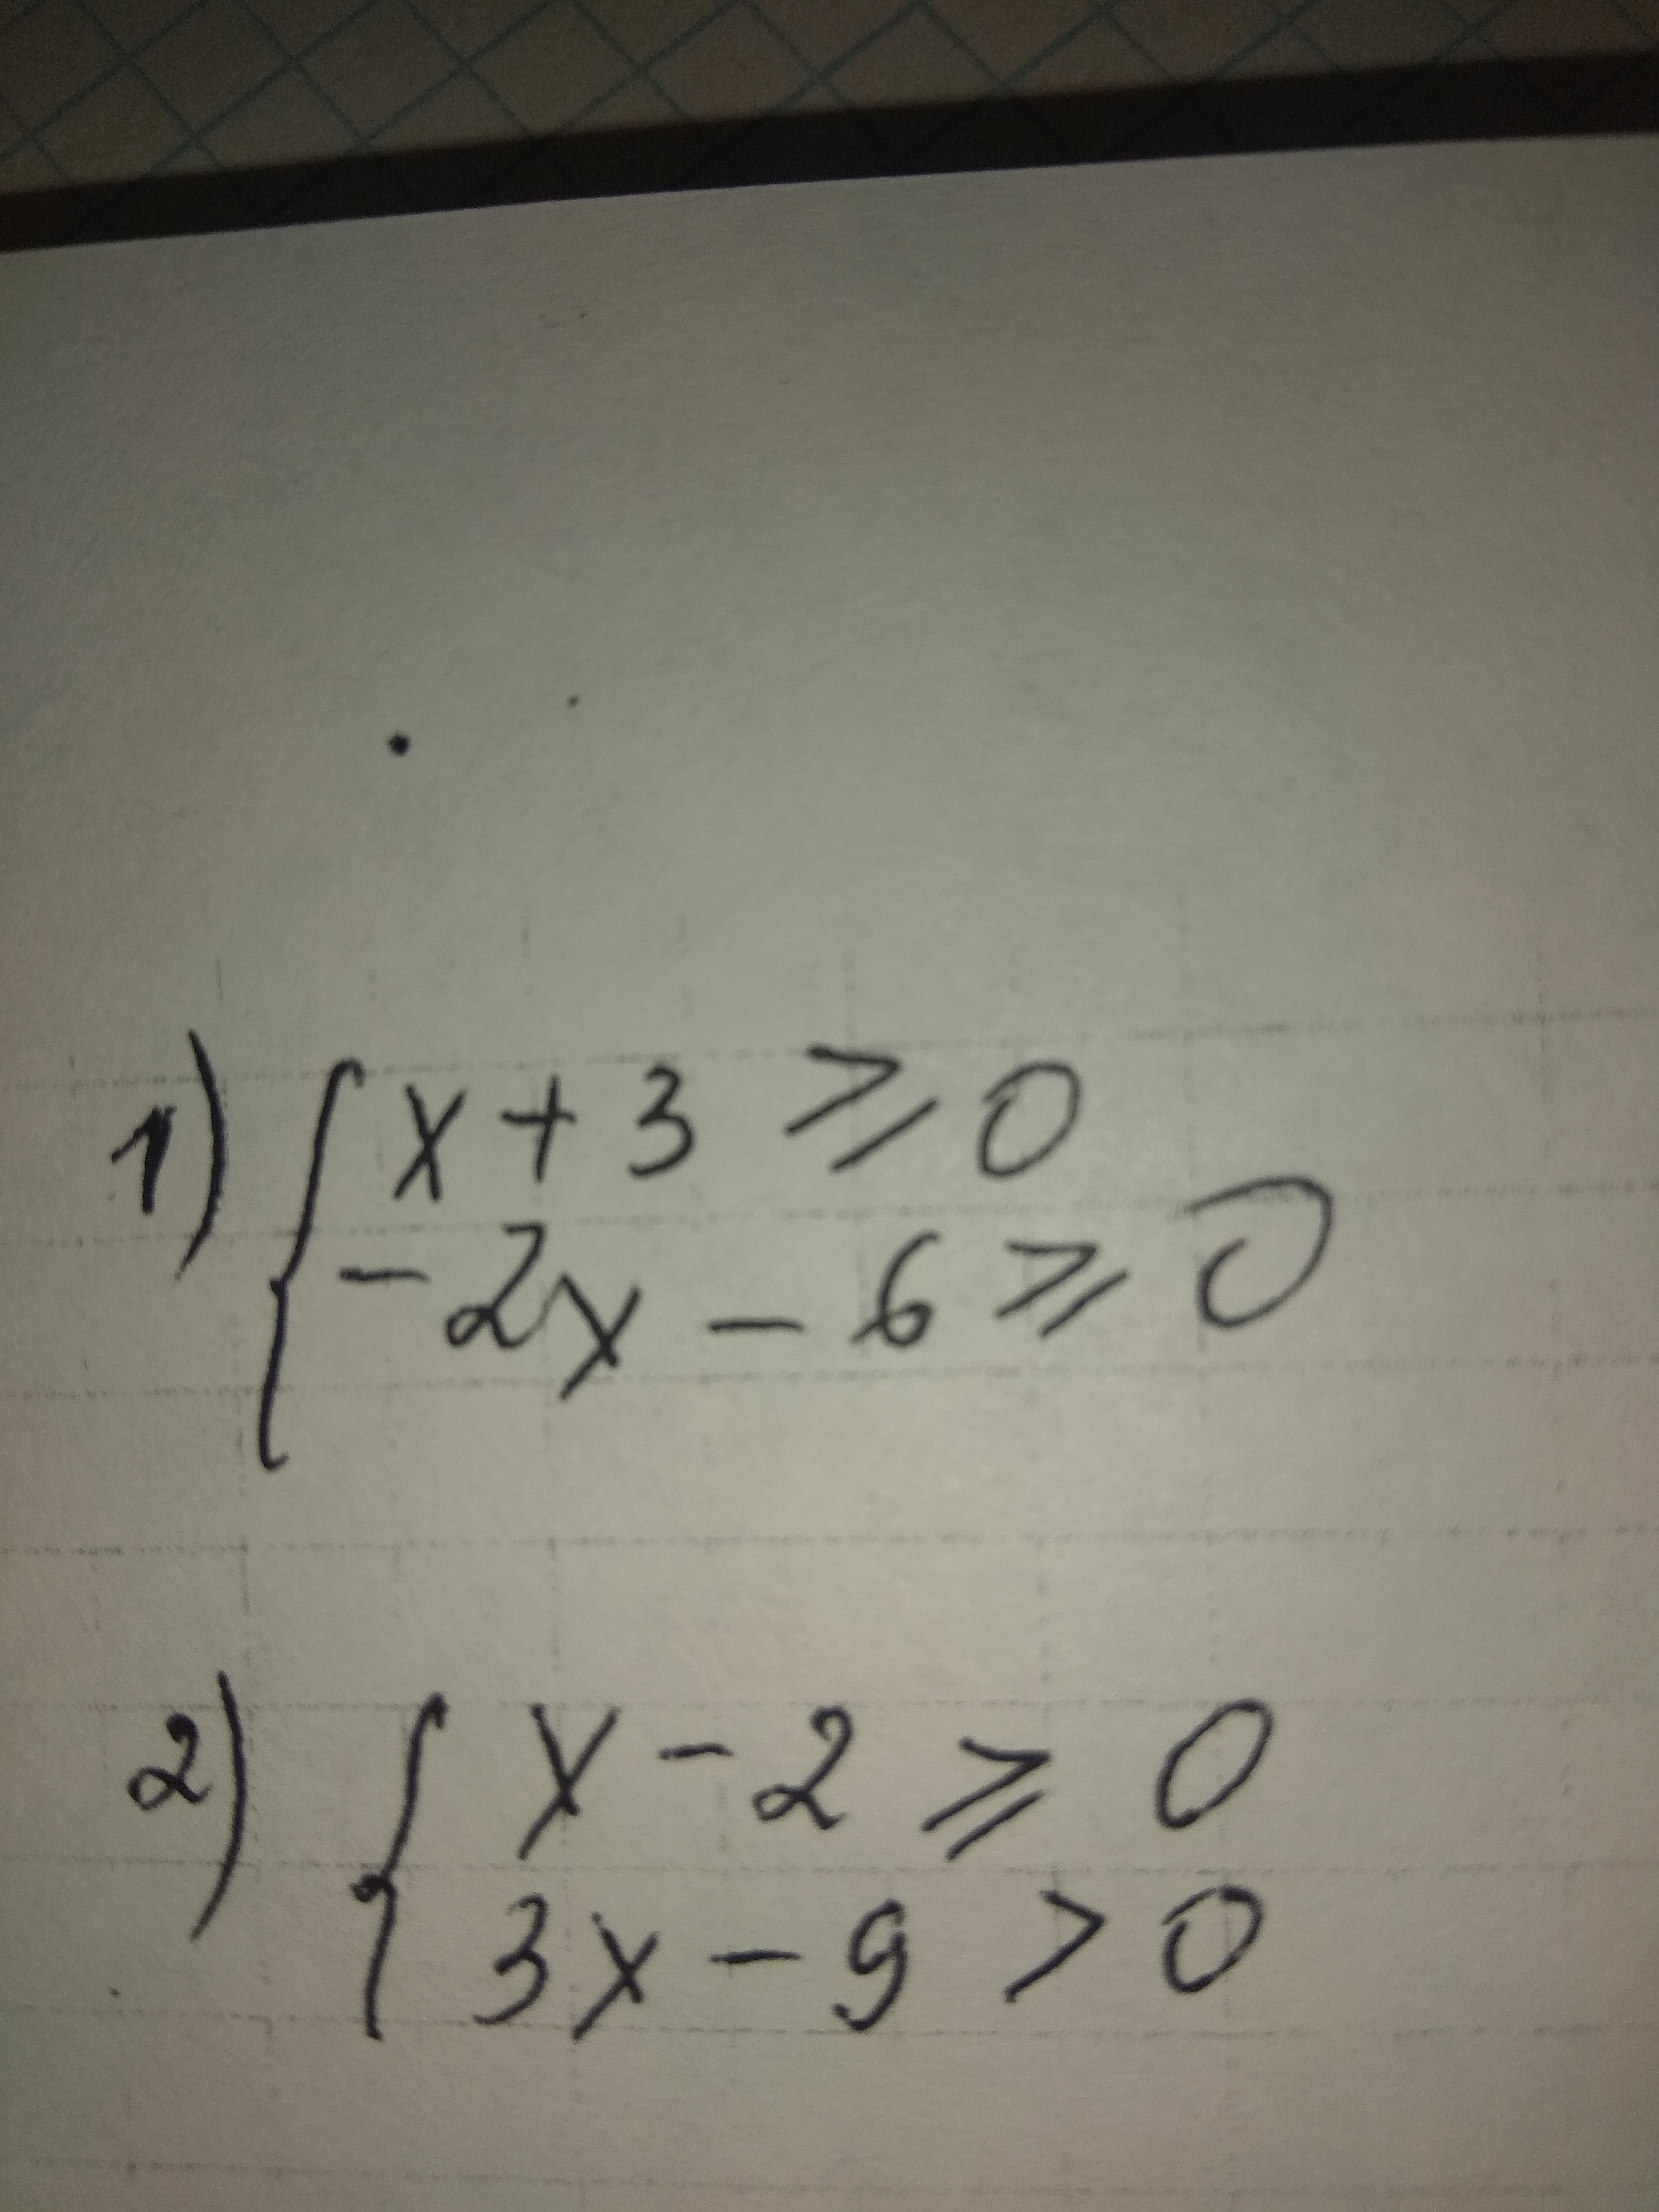 1) { x + 3 ⩾ 0
- 2x - 6 ⩾ 0
2) { x - 2 ⩾ 0
3x - 9 > 0